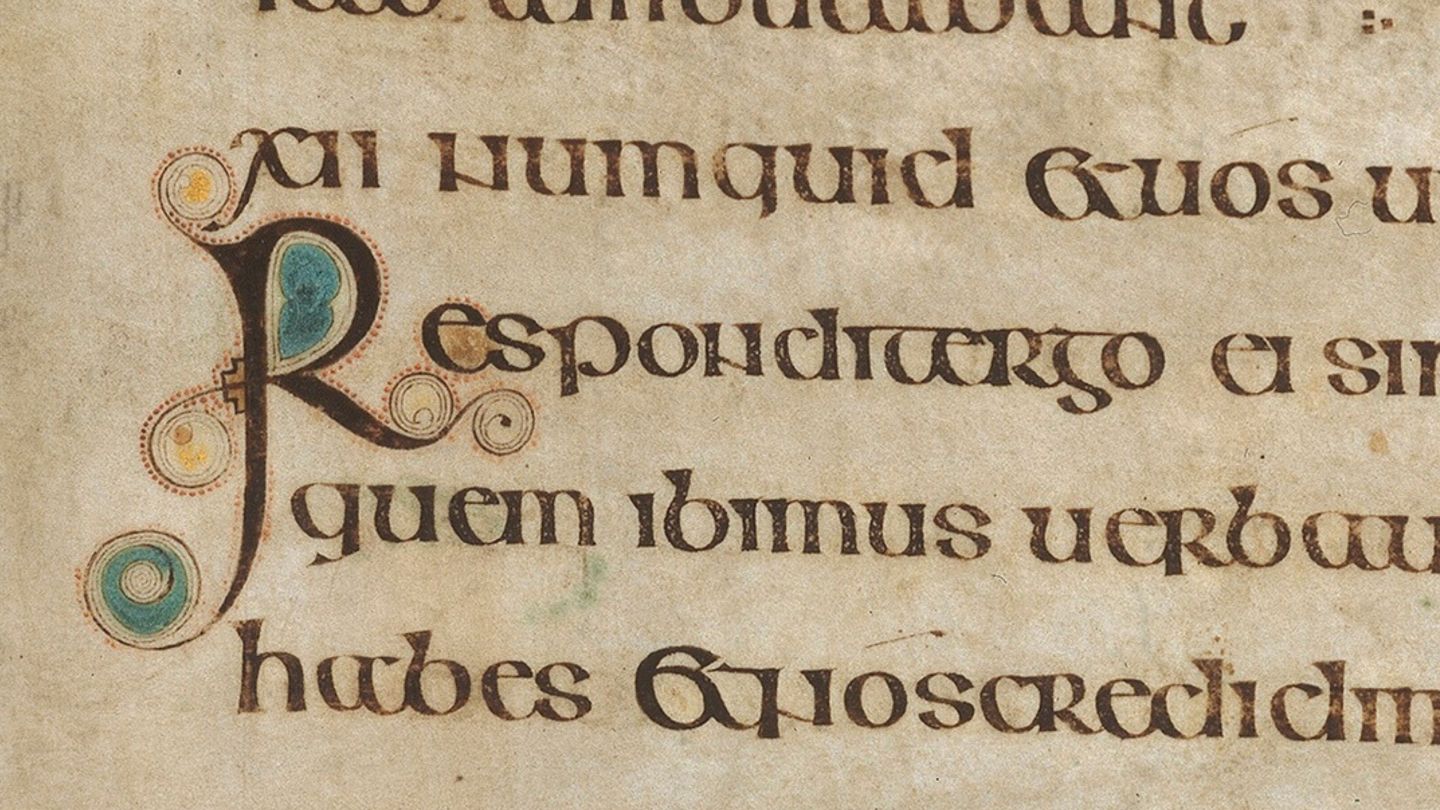 ambulabant
xii numquid et uos u
Respondit ergo ei sim
quem ibimus uerba u
habes et nos credidim